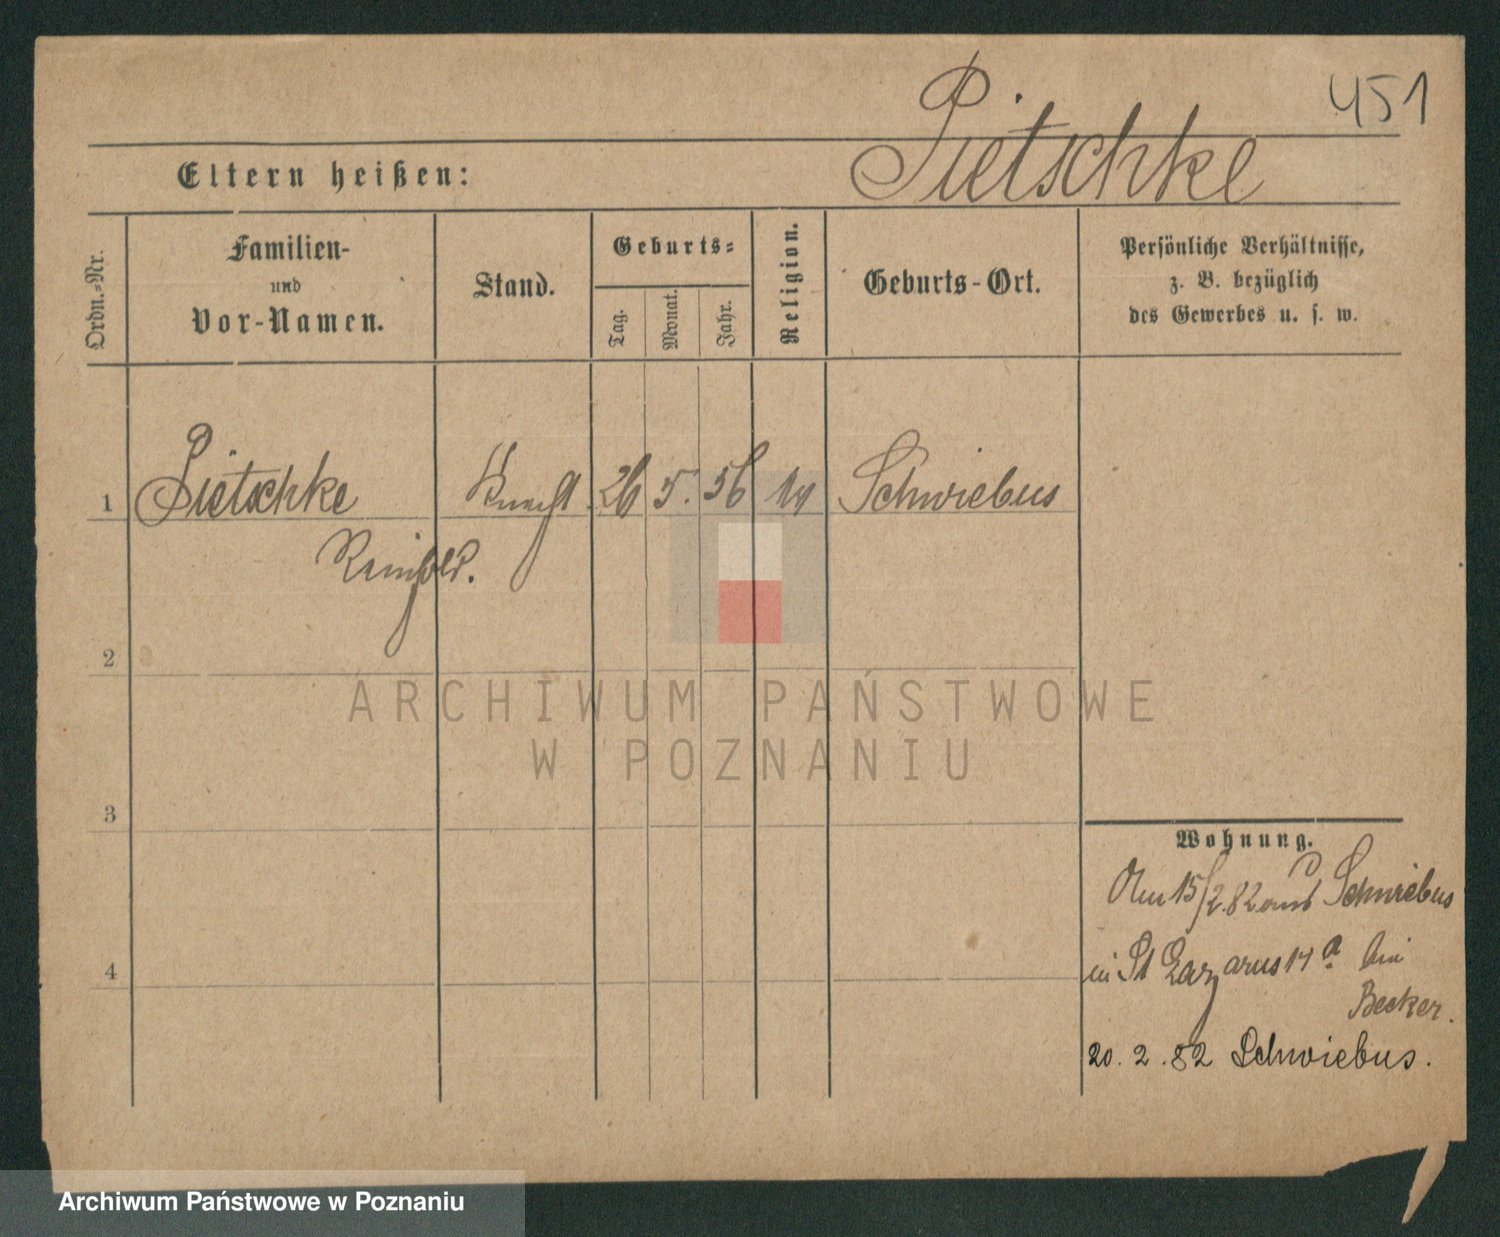 451
Pietschke
Eltern heißen:
Ordn.-Nr.
Familien-
und
Vor-Namen.
Stand.
Geburts-
Tag.
Monat.
Jahr.
Religion.
Geburts-Ort.
Persönliche Verhältnisse,
z. B. bezüglich
des Gewerbes u. s. w.
1 Pietschke Knecht 26 5. 56 Schwiebus
Reinhold.
2
ARCHIWUM PAŃSTWOWE
W POZNANIU
3
Wohnung.
Am 15/2.82 aus Schwiebus
in St Lazarus 17 a bei
Becker.
4
20. 2. 82 Schwiebus.
Archiwum Państwowe w Poznaniu